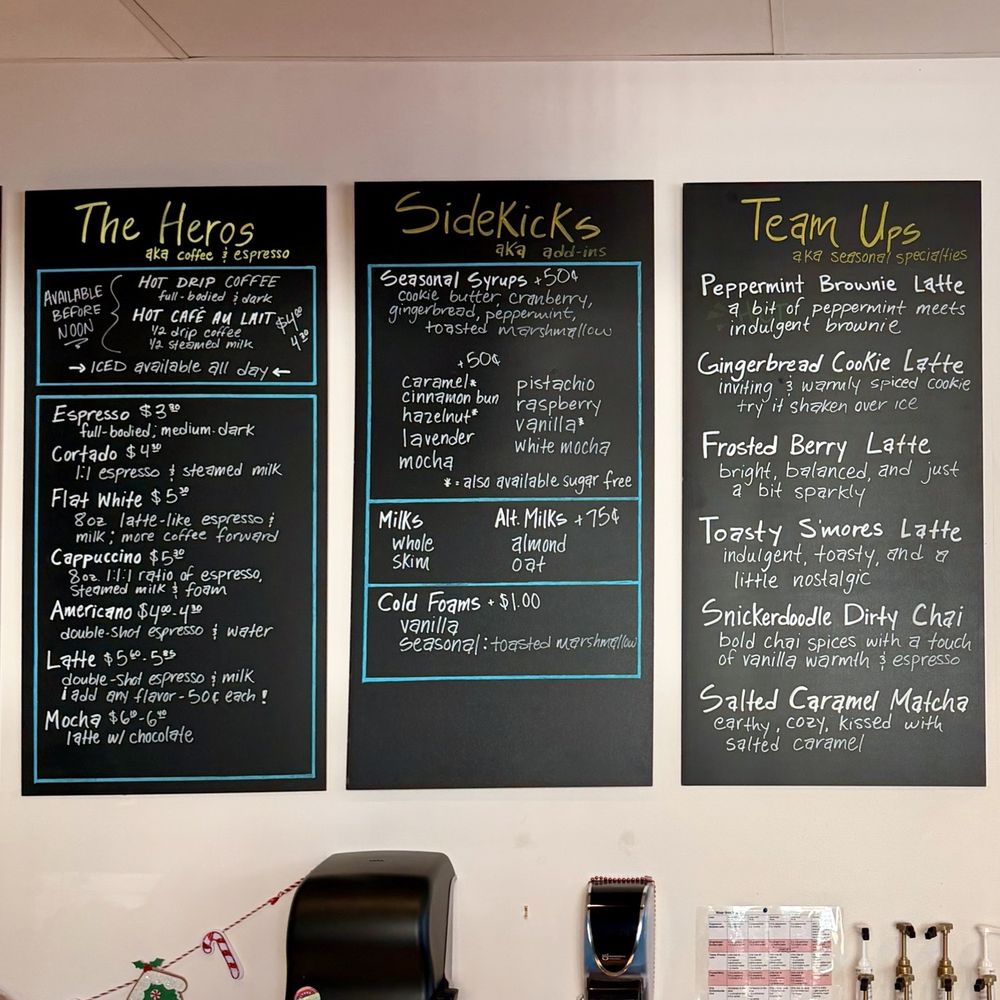 The Heros
aka coffee & espresso
AVAILABLE
BEFORE
NOON
HOT DRIP COFFEE
full-bodied & dark
HOT CAFÉ AU LAIT
1/2 drip coffee
1/2 steamed milk
$4.00
4.30
→ ICED available all day ←
Espresso $3.80
full-bodied, medium-dark
Cortado $4.30
1:1 espresso & steamed milk
Flat White $5.30
8oz latte-like espresso &
milk; more coffee forward
Cappuccino $5.30
8oz 1:1:1 ratio of espresso,
steamed milk & foam
Americano $4.00-4.30
double-shot espresso & water
Latte $5.60-5.85
double-shot espresso & milk
¡ add any flavor - 50¢ each!
Mocha $6.10-6.40
latte w/ chocolate
SideKicks
aka add-ins
Seasonal Syrups +50¢
cookie butter, cranberry,
gingerbread, peppermint,
toasted marshmallow
+50¢
caramel*
cinnamon bun
hazelnut*
lavender
mocha
pistachio
raspberry
vanilla*
white mocha
* = also available sugar free
Milks
whole
skim
Alt. Milks +75¢
almond
oat
Cold Foams + $1.00
vanilla
seasonal: toasted marshmallow
Team Ups
aka seasonal specialties
Peppermint Brownie Latte
a bit of peppermint meets
indulgent brownie
Gingerbread Cookie Latte
inviting & warmly spiced cookie
try it shaken over ice
Frosted Berry Latte
bright, balanced, and just
a bit sparkly
Toasty S'mores Latte
indulgent, toasty, and a
little nostalgic
Snickerdoodle Dirty Chai
bold chai spices with a touch
of vanilla warmth & espresso
Salted Caramel Matcha
earthy, cozy, kissed with
salted caramel